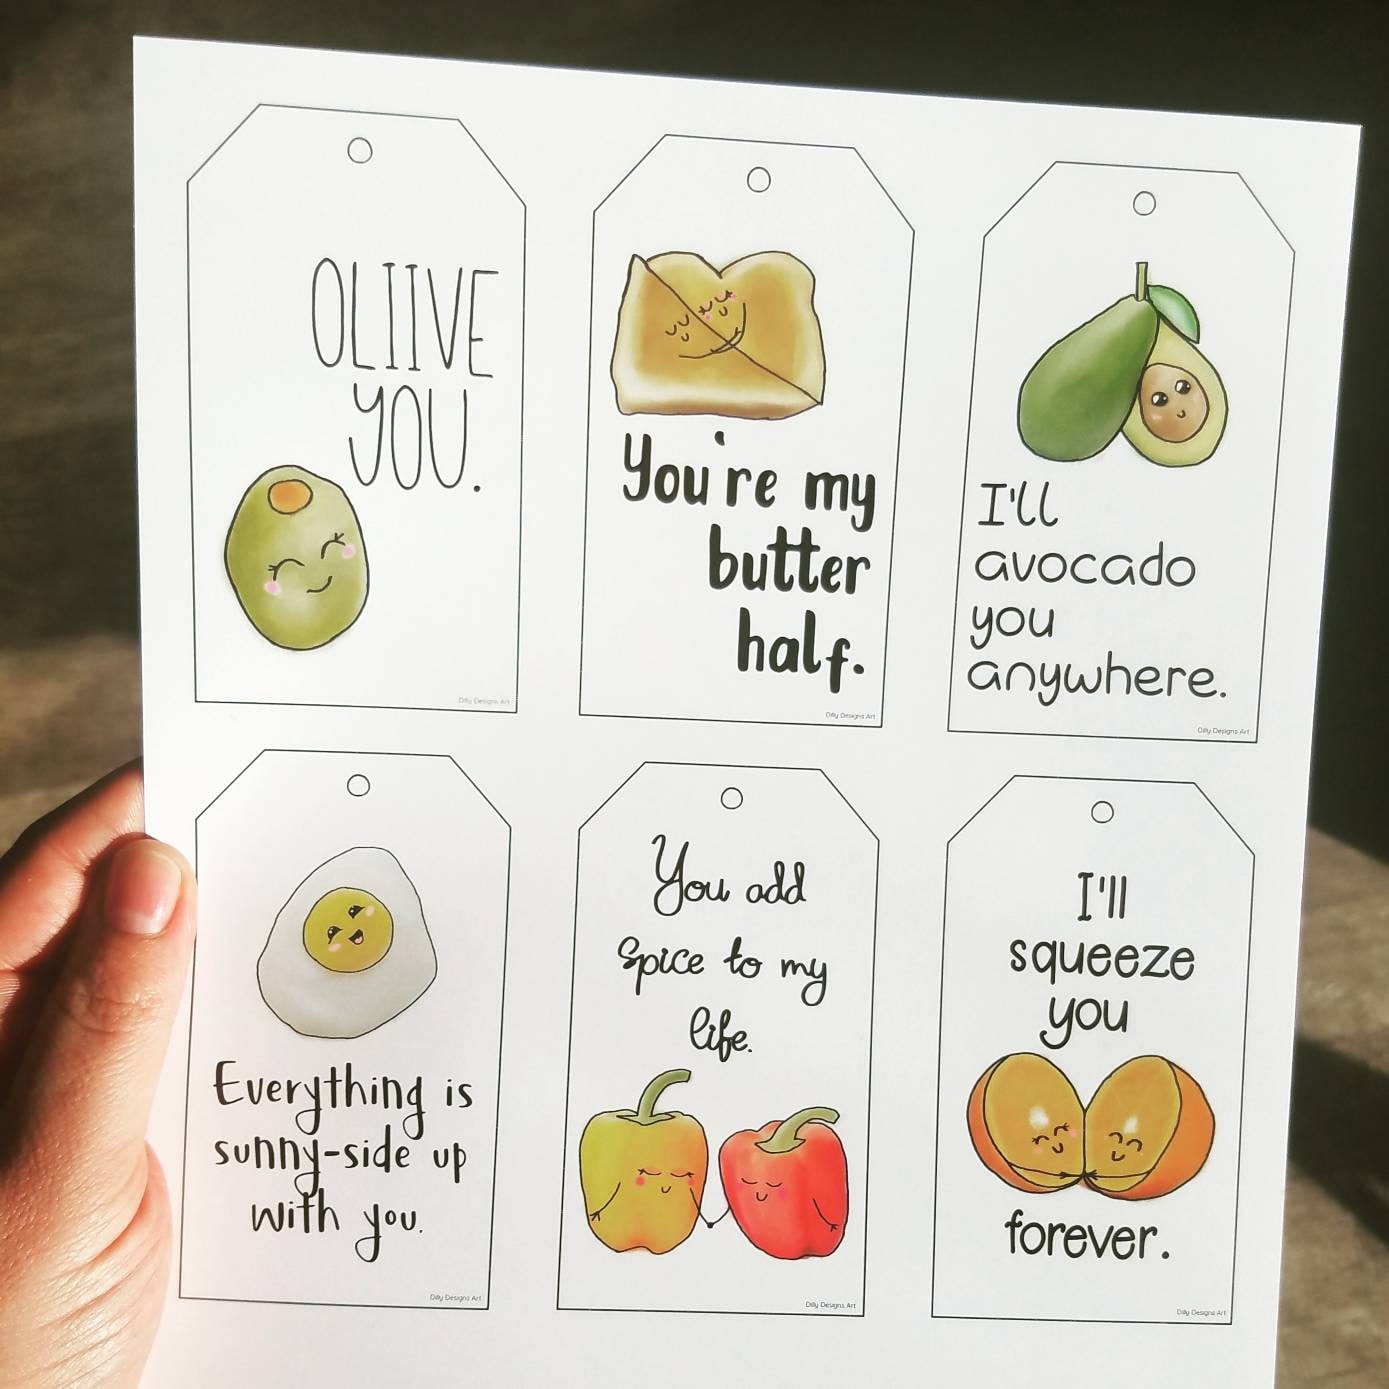 OLIIVE
YOU.
Dilly Designs Art
You're my
butter
half.
Dilly Designs Art
I'll
avocado
you
anywhere.
Dilly Designs Art
Everything is
sunny-side up
with you.
Dilly Designs Art
You add
spice to my
life.
Dilly Designs Art
I'll
squeeze
you
forever.
Dilly Designs Art